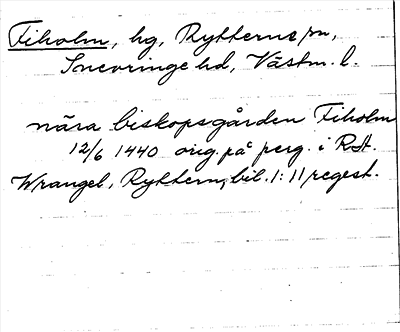 Fiholm, hg, Rytterne sn,
Snevringe hd, Västm. l.
nära biskopsgården Fiholm
12/6 1440 orig. på perg. i RA.
Wrangel, Ryttern, bil. 1: 11 regest.